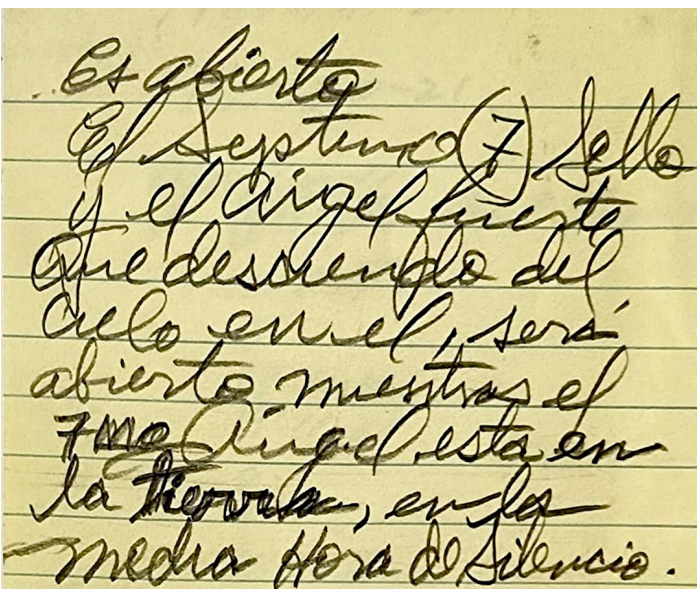 Es abierto
El Septimo (7) Sello
y el Angel fuerte
que desciende del
cielo en el, será
abierto mientras el
7mo Angel esta en
la tierra, en la
media Hora de Silencio.